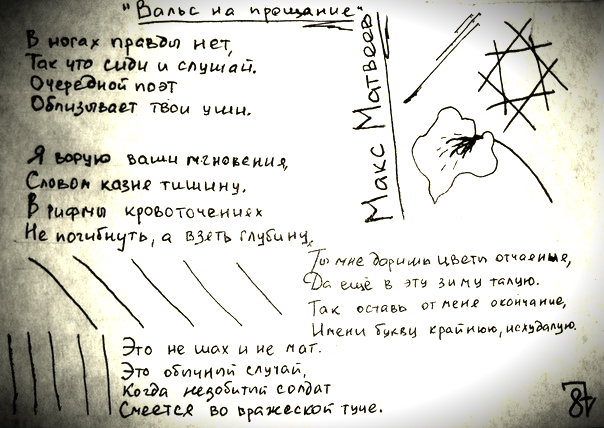 "Вальс на прощание"
В ногах правды нет,
Так что сиди и слушай.
Очередной поэт
Облизывает твои уши.
Я ворую ваши мгновения,
Словом казне тишину.
В рифмы кровоточениях
Не погибнуть, а взеть глубину.
Макс Матвеев
Ты мне даришь цветы отчаение,
Да ещё в эту зиму талую.
Так оставь от меня окончание,
Имени букву крайнюю, исхудалую.
Это не шах и не мат.
Это обычный случай,
Когда незобитый солдат
Смеется во вражеской туче.